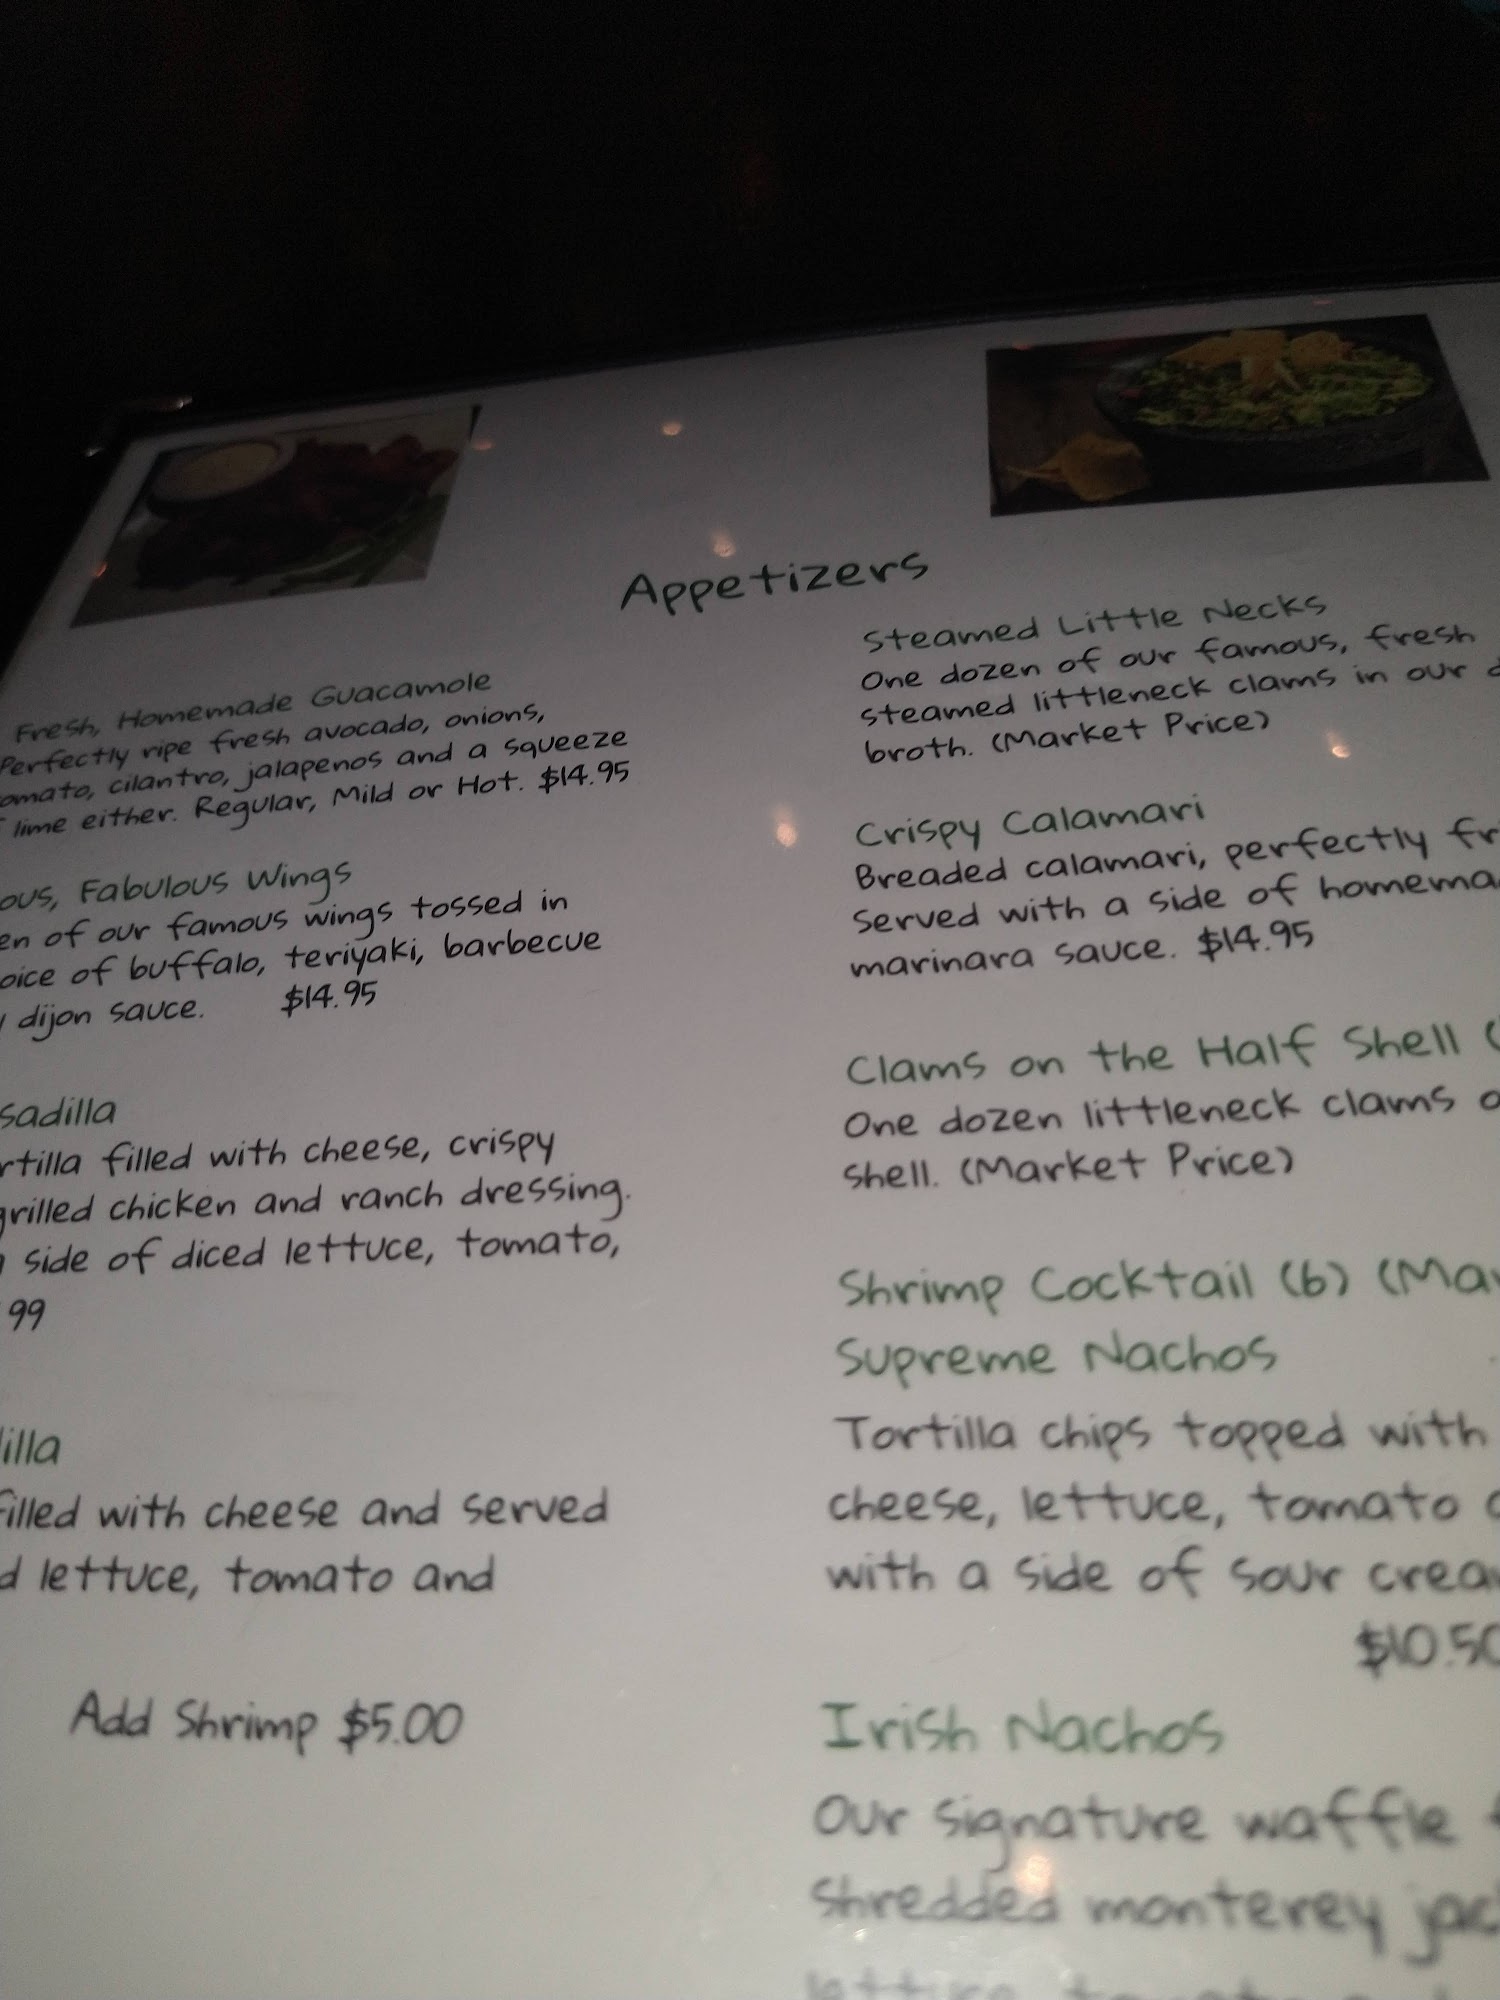 Appetizers
Fresh, Homemade Guacamole
Perfectly ripe fresh avocado, onions,
cilantro, jalapenos and a squeeze
lime either. Regular, Mild or Hot. $14.95
Fabulous Wings
of our famous wings tossed in
of buffalo, teriyaki, barbecue
dijon sauce. $14.95
filled with cheese, crispy
grilled chicken and ranch dressing.
side of diced lettuce, tomato,
99
filled with cheese and served
lettuce, tomato and
Add Shrimp $5.00
Steamed Little Necks
One dozen of our famous, fresh
steamed littleneck clams in our
broth. (Market Price)
Crispy Calamari
Breaded calamari, perfectly
served with a side of
marinara sauce. $14.95
Clams on the Half Shell
One dozen littleneck clams
shell. (Market Price)
Shrimp Cocktail (6)
Supreme Nachos
Tortilla chips topped with
cheese, lettuce, tomato
with a side of sour
$10.50
Irish Nachos
Our signature waffle
shredded monterey